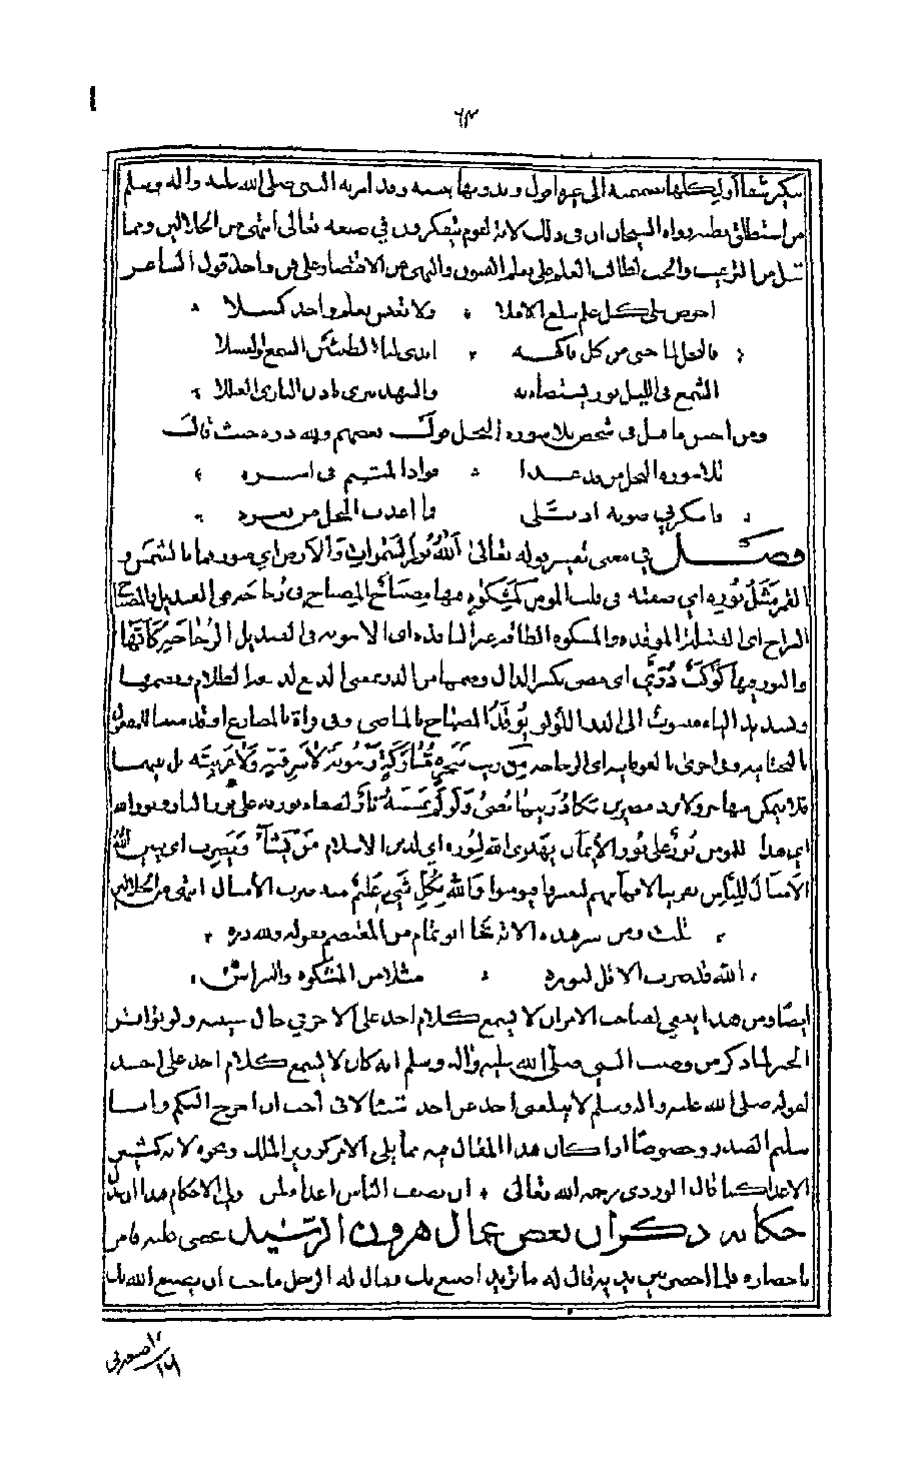 ٦٣
من استطلق بطنه رواه الشيخان ان فى ذلك لاية لقوم يتفكرون في صنعه تعالى انتهى من الجلالين ومما
قيل من الترغيب والحب لطالب العلم على تعلم الفنون والنهى عن الاقتصار على فن واحد قول الشاعر
احرص على كل علم تبلغ الاملا ولا تقتصر بعلم واحد كسلا
فالنحل لما جنى من كل فاكهة ابدى لنا الشمع والعسلا
الشمع فى الليل نور يستضاء به والشهد يبرى باذن البارئ العللا
ومن احسن ما قيل فى شخص تلا سورة النحل قول بعضهم ولله دره حيث قال
تلا سورة النحل من قد غدا فؤاد المتيم فى اسره
فاسكرني صوته اذ تلى فما اعذب النحل من ثغره
فصل في معنى تفسير قوله تعالى الله نور السموات والارض اي منورهما بالشمس و
القمر مثل نوره اي صفته فى قلب المومن كمشكوة فيها مصباح المصباح فى زجاجة هى القنديل والمصباح
السراج اى الفتيلة الموقدة والمشكوة الطاقة غير النافذة اى الانبوبة فى القنديل الزجاجة كانها
والنور فيها كوكب دري اى مضى بكسر الدال وضمها من الدرء بمعنى الدفع لدفعها الظلام وبضمها
وتشديد الياء منسوب الى الدر اللؤلؤ توقد المصباح بالماضى وفى قراة بمضارع اوقد مبنيا للمفعول
بالتحتانية وفى اخرى بالفوقانية اى الزجاجة من زيت شجرة مباركة زيتونة لا شرقية ولا غربية بل بينهما
فلا يتمكن منها حر ولا برد مضرين يكاد زيتها يضئ ولو لم تمسسه نار لصفائه نور به على نور بالنار ونور الله
اي هداه للمومن نور على نور الايمان يهدى الله لنوره اي لدين الاسلام من يشاء ويضرب اى يبين الله
الامثال للناس تقريبا لافهامهم ليعتبروا فيومنوا والله بكل شئ عليم منه ضرب الأمثال انتهى من الجلالين
قلت ومن سر هذه الاية نحا ابو تمام من المعتصم بقوله ولله دره
الله قد ضرب الاقل لنوره مثلا من المشكوة والنبراس
ايضا ومن هذا ينبغي لصاحب الامر ان لا يسمع كلام احد على الاخر في حال سيسر ولو تواتر
الخبر لما ذكر من وصف النبى صلى الله عليه واله وسلم انه كان لا يسمع كلام احد على احد
لقوله صلى الله عليه واله وسلم لا يبلغنى احد عن احد شيئا لانى احب ان اخرج اليكم وانا
سليم الصدر وخصوصا اذا كان هذا المقال فيه مما يلى الامر كوزير الملك ونحوه لانه كثير
الاعدا كما قال الوردى رحمه الله تعالى ان نصف الناس اعدا لمن ولى الاحكام هذا ان عدل
حكاية ذكر ان بعض عمال هرون الرشيد عصى عليه فامر
باحضاره فلما احضر بين يديه قال له ما تريد اصنع بك فقال له الرجل ما تحب ان يصنع الله بك